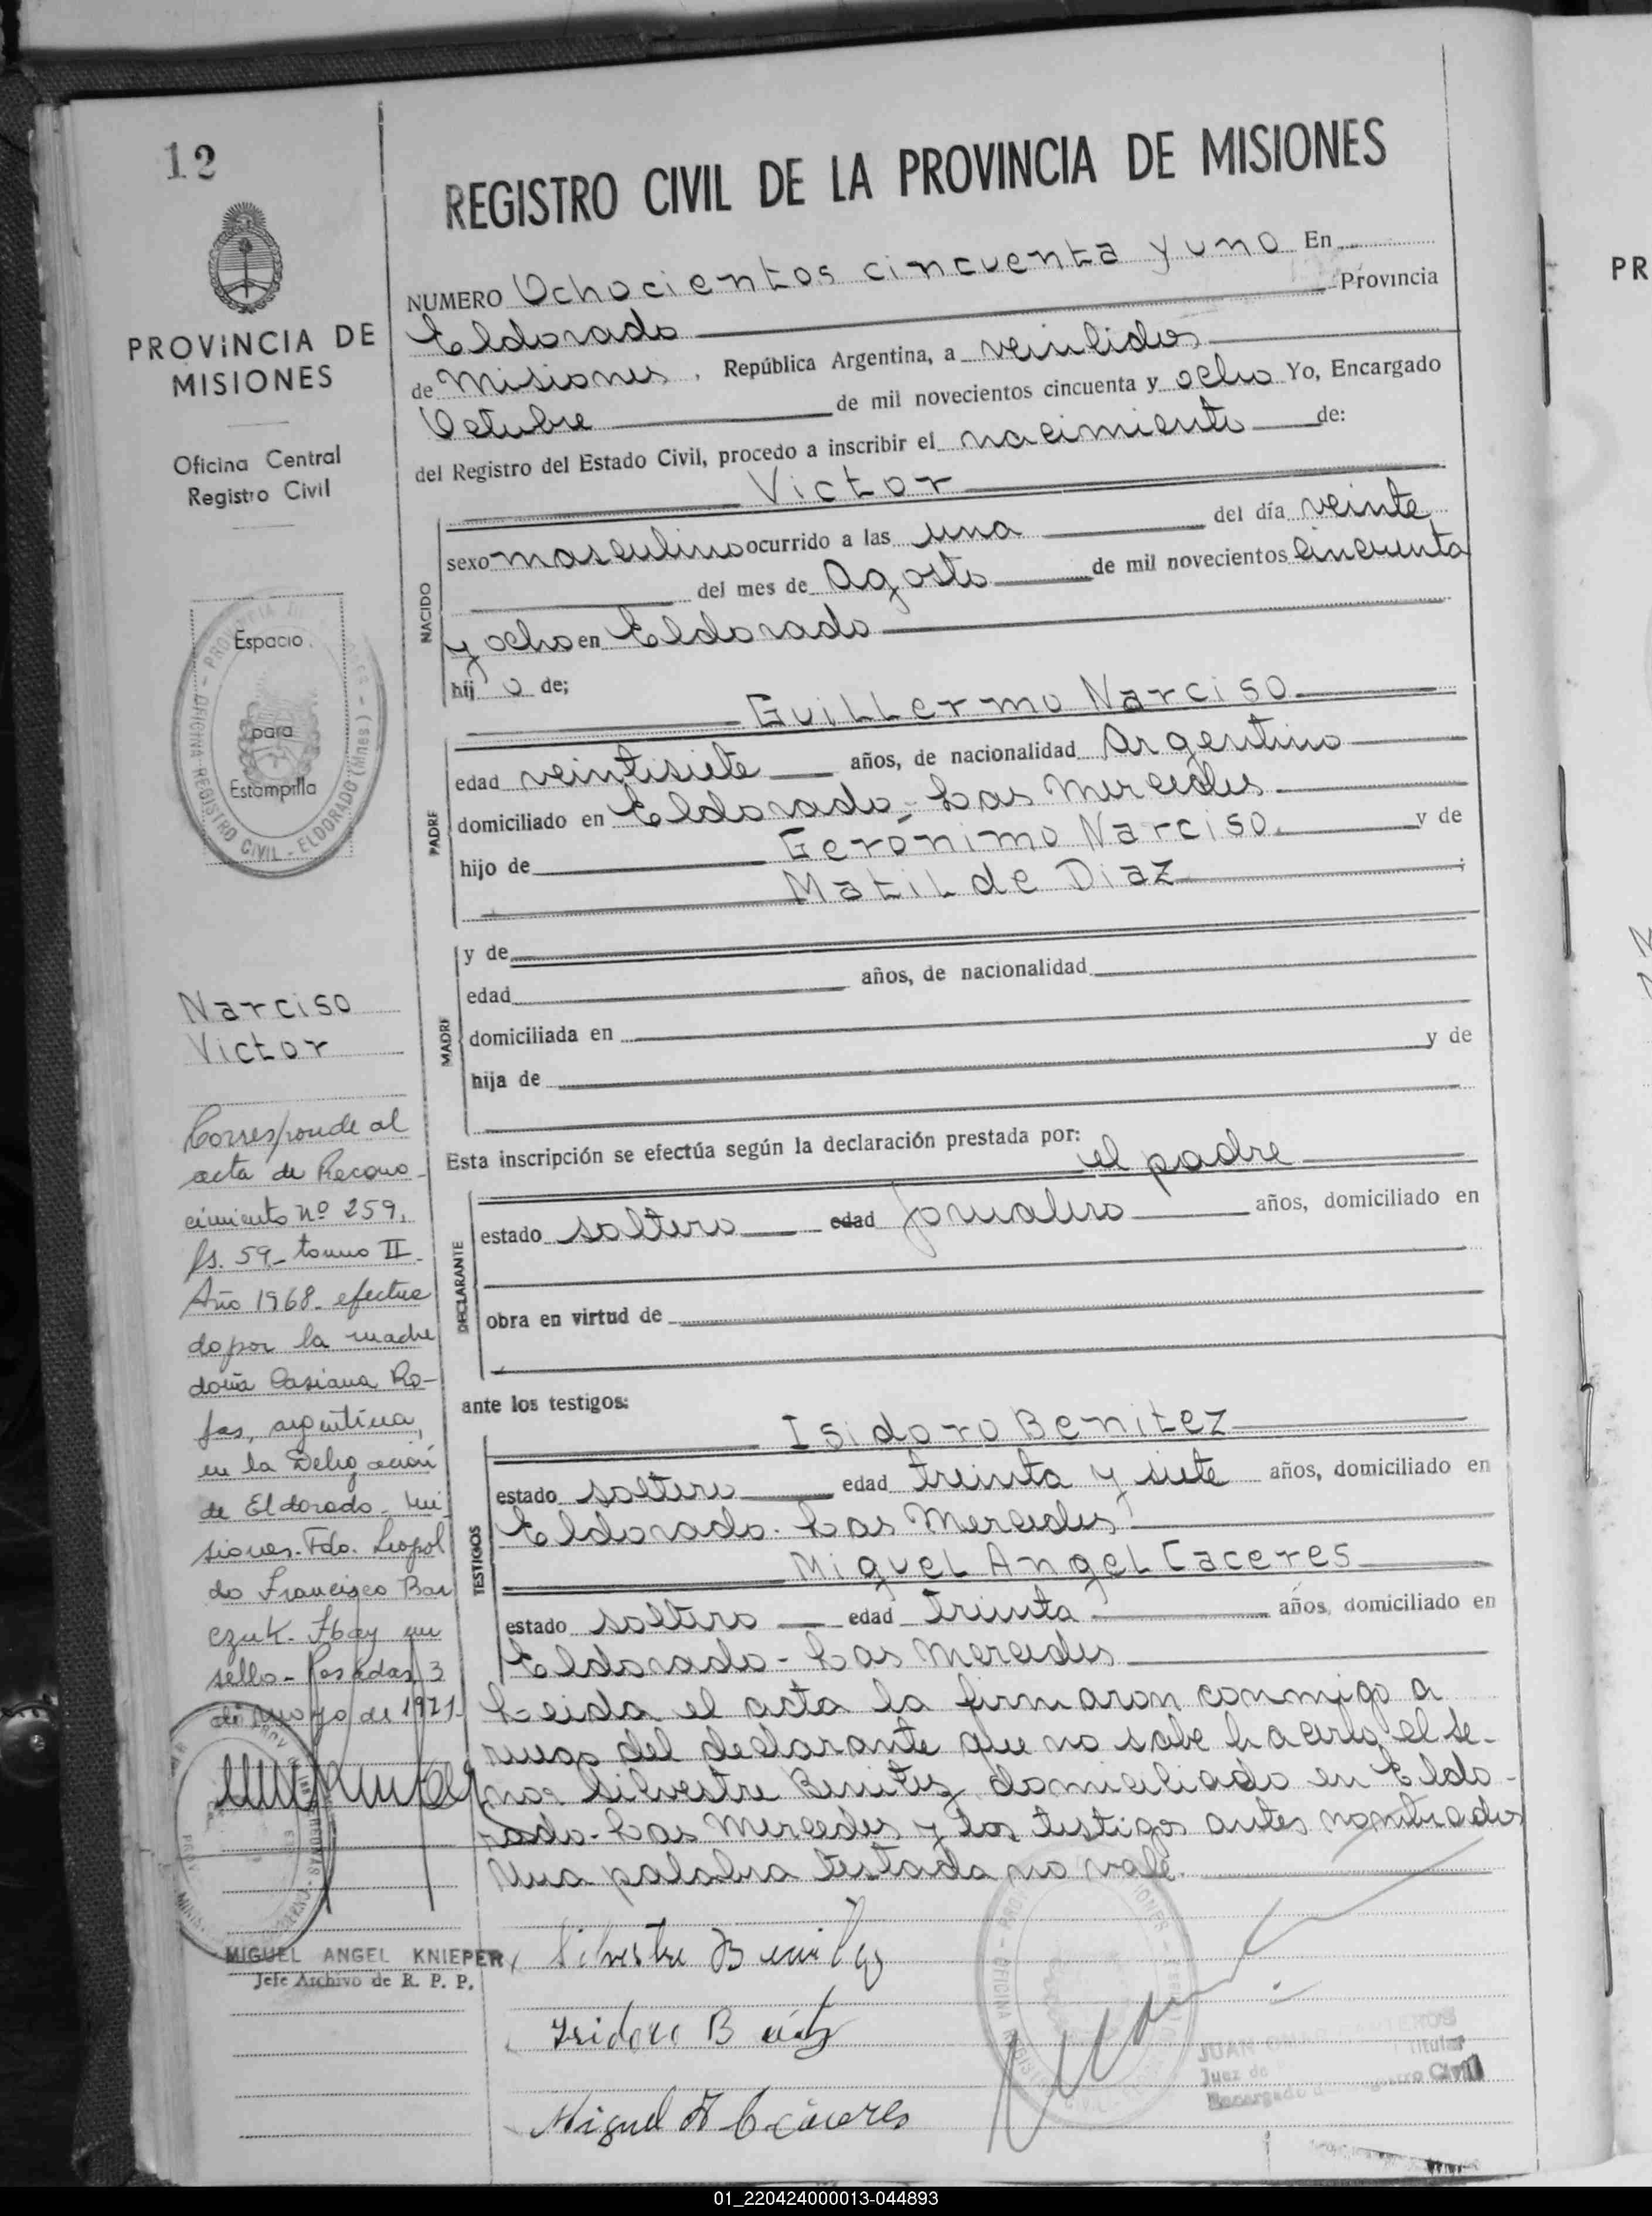 12
PROVINCIA DE
MISIONES
Oficina Central
Registro Civil
Espacio
para
Estampilla
OFICINA REGISTRO CIVIL - ELDORADO (Mnes)
Narciso
Victor
Corresponde al
acta de Recono-
cimiento nº 259,
fs. 59 - tomo II -
Año 1968 - efectua
do por la madre
doña Casiana Ro-
jas, argentina,
en la Delegación
de Eldorado - Mi
siones. Fdo. Leopol
do Francisco Bar
czuk. Hay un
sello - Posadas, 3
de Mayo de 1971.
MIGUEL ANGEL KNIEPER
Jefe Archivo de R. P. P.
REGISTRO CIVIL DE LA PROVINCIA DE MISIONES
NUMERO Ochocientos cincuenta y uno En
Eldorado Provincia
de Misiones, República Argentina, a veintidos
Octubre de mil novecientos cincuenta y ocho Yo, Encargado
del Registro del Estado Civil, procedo a inscribir el nacimiento de:
Victor
NACIDO
sexo masculino ocurrido a las una del día veinte
del mes de Agosto de mil novecientos cincuenta
y ocho en Eldorado
hij o de;
Guillermo Narciso
PADRE
edad veintisiete años, de nacionalidad Argentino
domiciliado en Eldorado - Las Mercedes
hijo de Gerónimo Narciso y de
Matilde Diaz
MADRE
y de
edad años, de nacionalidad
domiciliada en
hija de y de
Esta inscripción se efectúa según la declaración prestada por:
el padre
DECLARANTE
estado soltero edad jornalero años, domiciliado en
obra en virtud de
ante los testigos:
Isidoro Benitez
TESTIGOS
estado soltero edad treinta y siete años, domiciliado en
Eldorado - Las Mercedes
Miguel Angel Caceres
estado soltero edad treinta años, domiciliado en
Eldorado - Las Mercedes
Leida el acta la firmaron conmigo a
ruego del declarante que no sabe hacerlo el se-
ñor Silvestre Benitez domiciliado en Eldo-
rado - Las Mercedes y los testigos antes nombrados
Una palabra testada no vale.
Silvestre Benitez
Isidoro Benitez
Miguel A Caceres
JUAN OMAR
Titular
Juez de
Encargado Registro Civil
PR
01_220424000013-044893